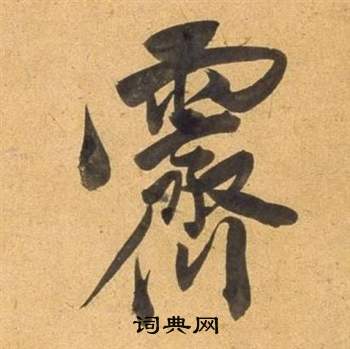 霽
词典网